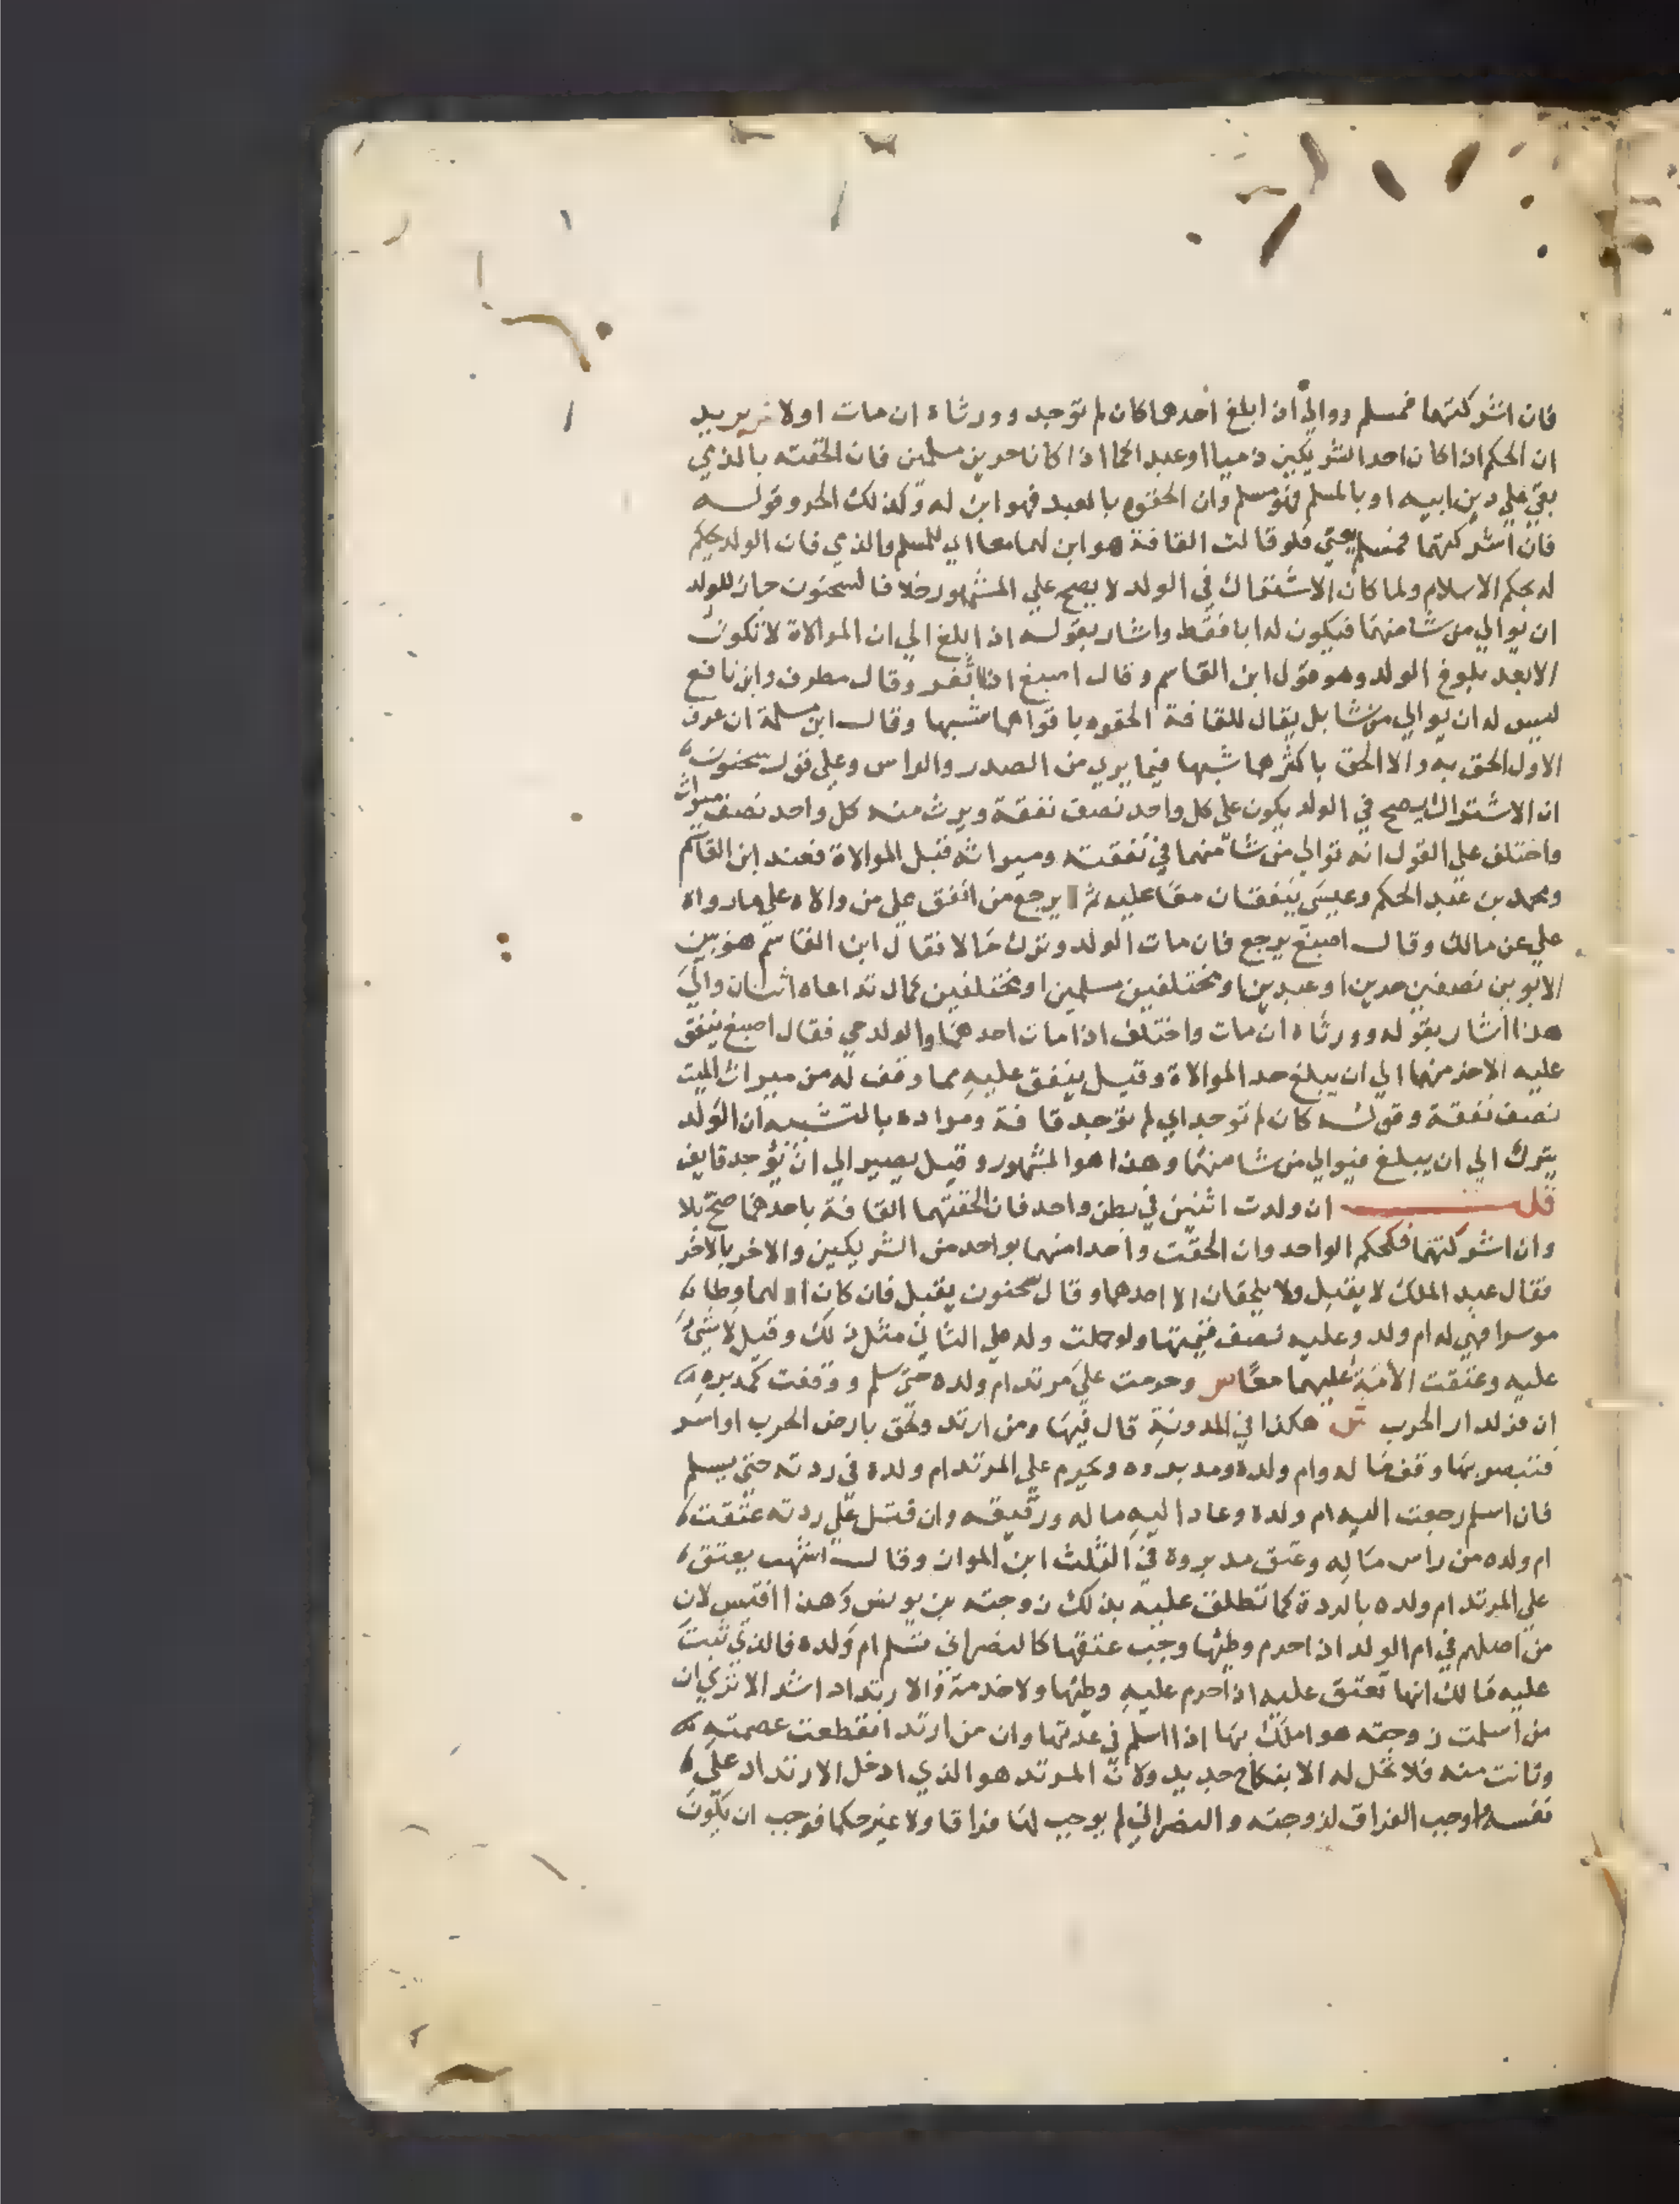 فان اشركتهما فمسلم ووالي اذا بلغ احدهما كان لم توجد وورثاه ان مات اولا يريد
ان الحكم اذا كان احد الشريكين ذميا او عبدا كما اذا كانا حرين مسلمين فان الحقته بالذي
بقي علي دين ابيه او بالمسلم فهو مسلم وان الحقوه بالعبد فهو ابن له وكذلك الحر وقوله
فان اشركتهما فمسلم يعني فلو قالت القافة هو ابن لهما معا اي للمسلم والذي فان الولد يحكم
له بحكم الاسلام ولما كان الاشتراك في الولد لا يصح علي المشهور خلافا لسحنون جاز للولد
ان يوالي من شا منهما فيكون له ابا فقط واشار بقوله اذا بلغ الي ان الموالاة لا تكون
الا بعد بلوغ الولد وهو قول ابن القاسم وقال اصبغ اذا اثغر وقال مطرف وابن نافع
ليس له ان يوالي من شا بل يقال للقافة الحقوه باقواهما شبها وقال ابن مسلمة ان عرف
الاول الحق به والا الحق باكثرهما شبها فيما يري من الصدر والراس وعلي قول سحنون
ان الاشتراك يصح في الولد يكون علي كل واحد نصف نفقة ويرث منه كل واحد نصف ميراث
واختلف علي القول انه توالي من شا منهما في نفقته وميراثه قبل الموالاة فعند ابن القاسم
ومحمد بن عبد الحكم وعيسي ينفقان معا عليه ثم يرجع من انفق علي من والاه علي ما رواه
علي عن مالك وقال اصبغ يرجع فان مات الولد وترك مالا فقال ابن القاسم هو بين
الابوين نصفين حرين او عبدين او مختلفين مسلمين او مختلفين كمال تداعاه اثنان والي
هذا اشار بقوله وورثاه ان مات واختلف اذا مات احدهما والولد حي فقال اصبغ ينفق
عليه الاخر منهما الي ان يبلغ حد الموالاة وقيل ينفق عليه مما وقف له من ميراث الميت
نصف نفقة وقوله كان لم توجد اي لم توجد قافة ومراده بالتشبيه ان الولد
يترك الي ان يبلغ فيوالي من شا منهما وهذا هو المشهور وقيل يصير الي ان يوجد قايف
ان ولدت اثنين في بطن واحد فان الحقتهما القافة باحدهما صح بلا
وان اشركتهما فكحكم الواحد وان الحقت واحدا منهما بواحد من الشريكين والاخر بالاخر
فقال عبد الملك لا يقبل ولا يلحقان الا احدهما وقال سحنون يقبل فان كان اولهما وطا
موسرا فهي له ام ولد وعليه نصف قيمتها ولو حملت وله علي الثاني مثل ذلك وقيل لا شي
عليه وعتقت الامة عليهما معا ص وحرمت علي مرتد ام ولده حتي يسلم ووقفت كمدبره
ان فر لدار الحرب ش هكذا في المدونة قال فيها ومن ارتد ولحق بارض الحرب او اسر
فتنصر بها وقف ماله وام ولده ومدبروه ويحرم علي المرتد ام ولده في ردته حتي يسلم
فان اسلم رجعت اليه ام ولده وعاد اليه ماله ورقيقه وان قتل علي ردته عتقت
ام ولده من راس ماله وعتق مدبروه في الثلث ابن المواز وقال اشهب يعتق
علي المرتد ام ولده بالردة كما تطلق عليه بذلك زوجته بن يونس وهذا اقيس لان
من اصلهم في ام الولد اذا حرم وطيها وجب عتقها كالنصراني تسلم ام ولده فالذي ثبت
عليه مالك انها تعتق عليه اذا حرم عليه وطيها ولا خدمة والارتداد اشد الا تري ان
من اسلمت زوجته هو املك بها اذا اسلم في عدتها وان من ارتد انقطعت عصمته
وبانت منه فلا تحل له الا بنكاح جديد ولان المرتد هو الذي ادخل الارتداد علي
نفسه واوجب الفراق لزوجته والنصراني لم يوجب لها فراقا ولا غير حكما فوجب ان يكون